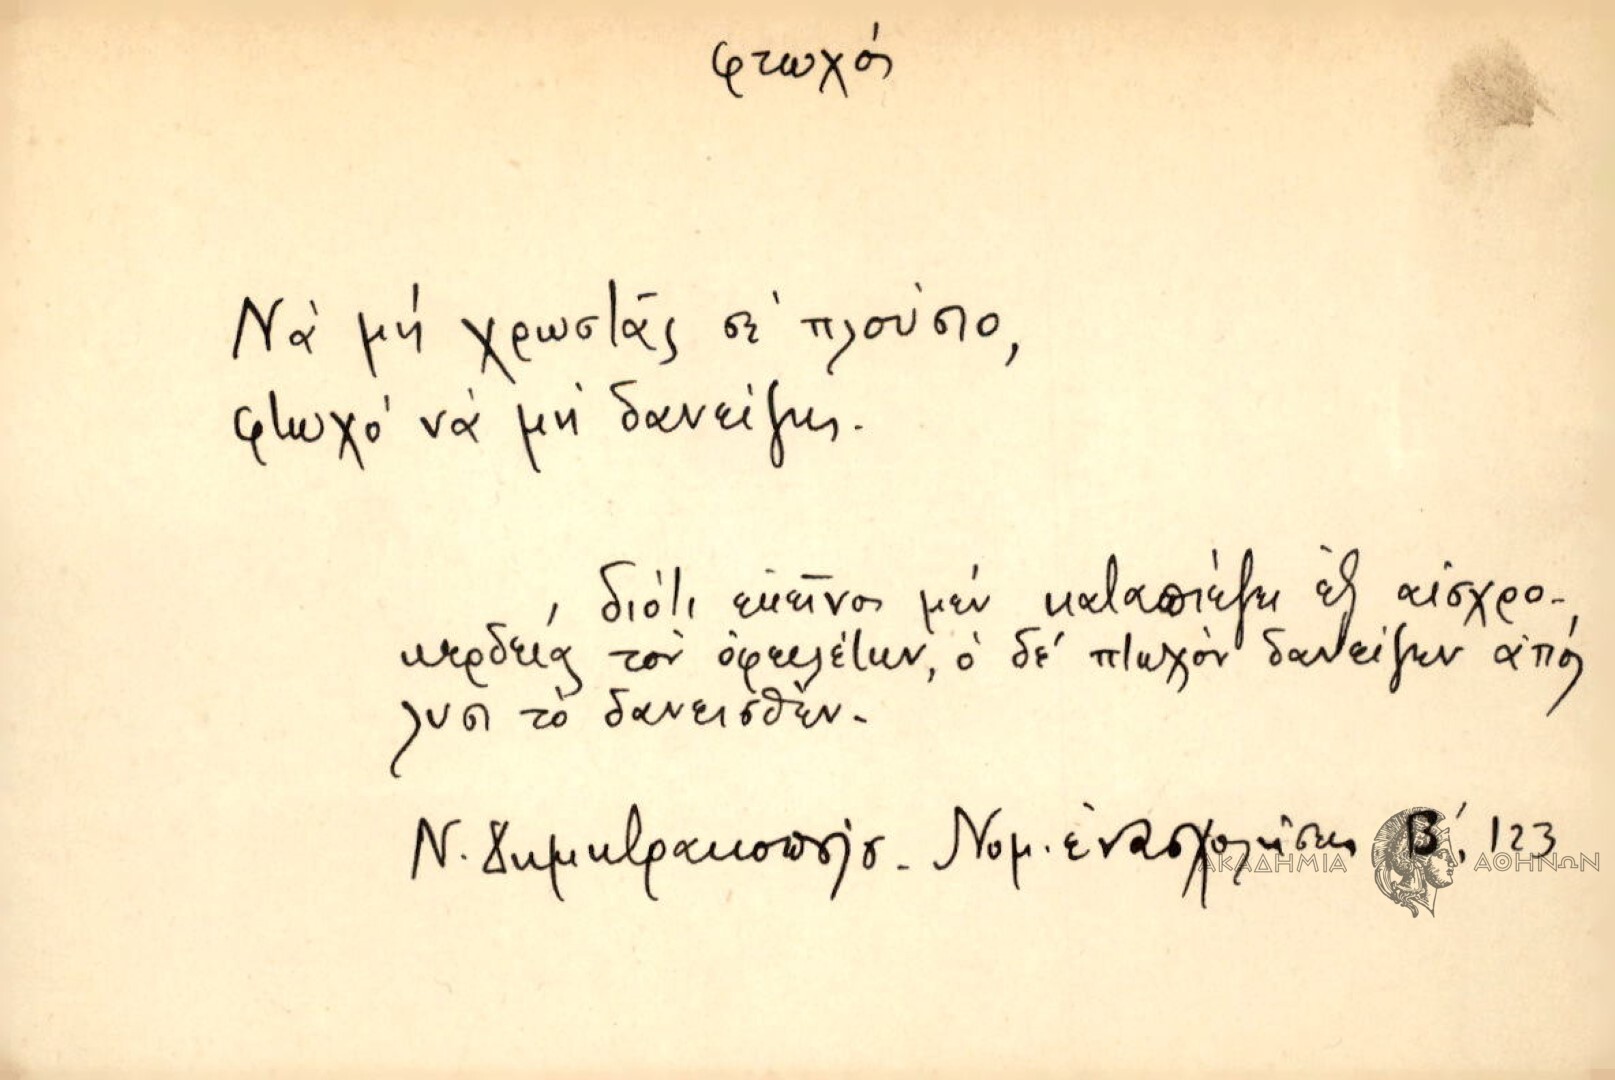 φτωχός
Νὰ μή χρωστᾶς σὲ πλούσιο,
φτωχό νὰ μή δανείζης.
, διότι ἐκεῖνος μέν καταπιέζει ἐξ αἰσχρο-
κερδείας τὸν ὀφειλέτην, ὁ δέ πτωχὸν δανείζων ἀπό
λυσι τὸ δανεισθὲν.
Ν. Δημητρακοπούλου. Νομ. ἐνασχολήσεις Β΄, 123
ΑΚΑΔΗΜΙΑ ΑΘΗΝΩΝ